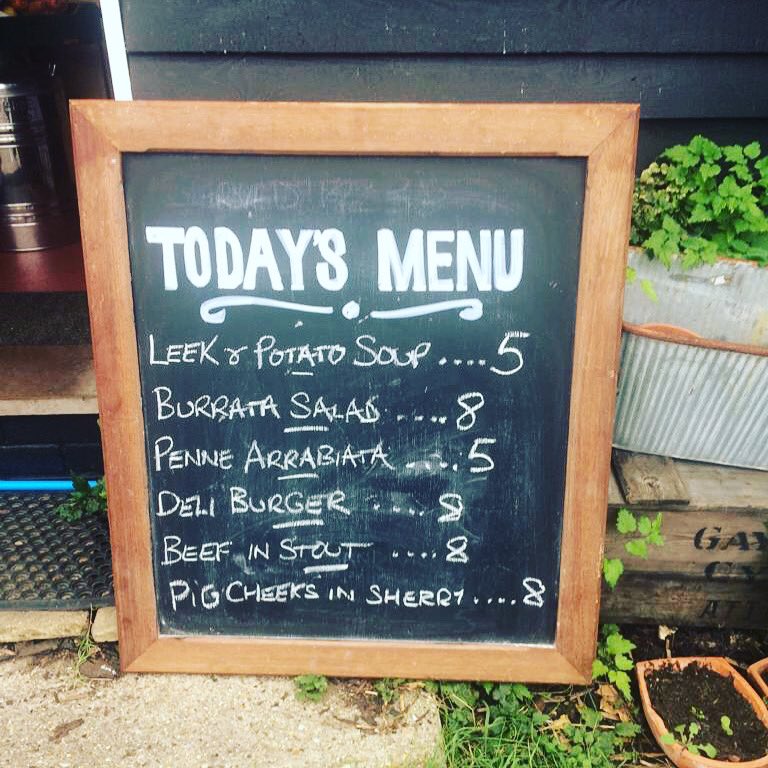 TODAY'S MENU
LEEK & POTATO SOUP .... 5
BURRATA SALAD .... 8
PENNE ARRABIATA .... 5
DELI BURGER .... 8
BEEF IN STOUT .... 8
PIG CHEEKS IN SHERRY .... 8